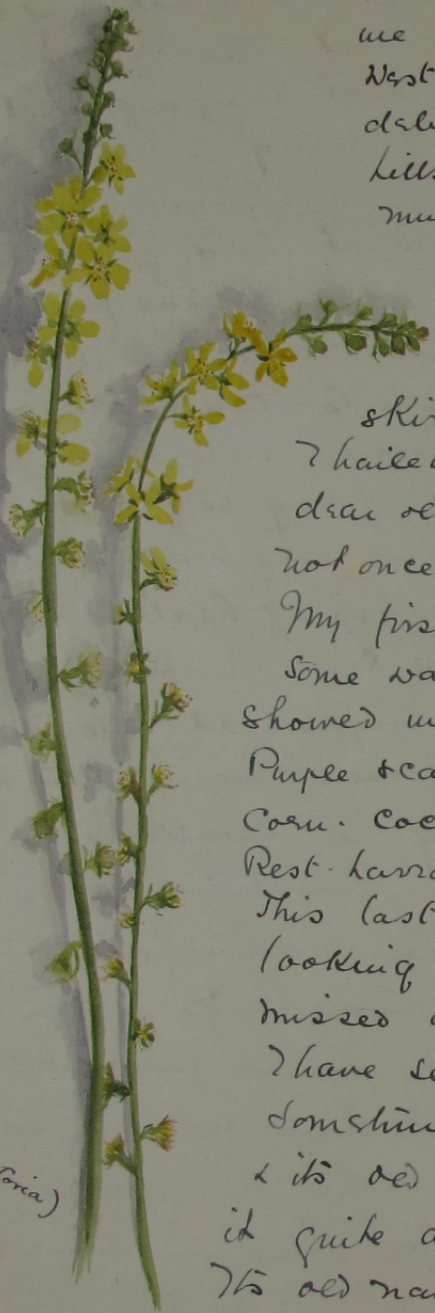 me
West
dale
hills
mu
skir
I hailed
dear ol
not once
My firs
Some wa
showed m
Purple sca
Corn. Coc
Rest-harro
This last
looking
missed
I have se
Sometim
& its old
it quite a
Its old nam
toria)